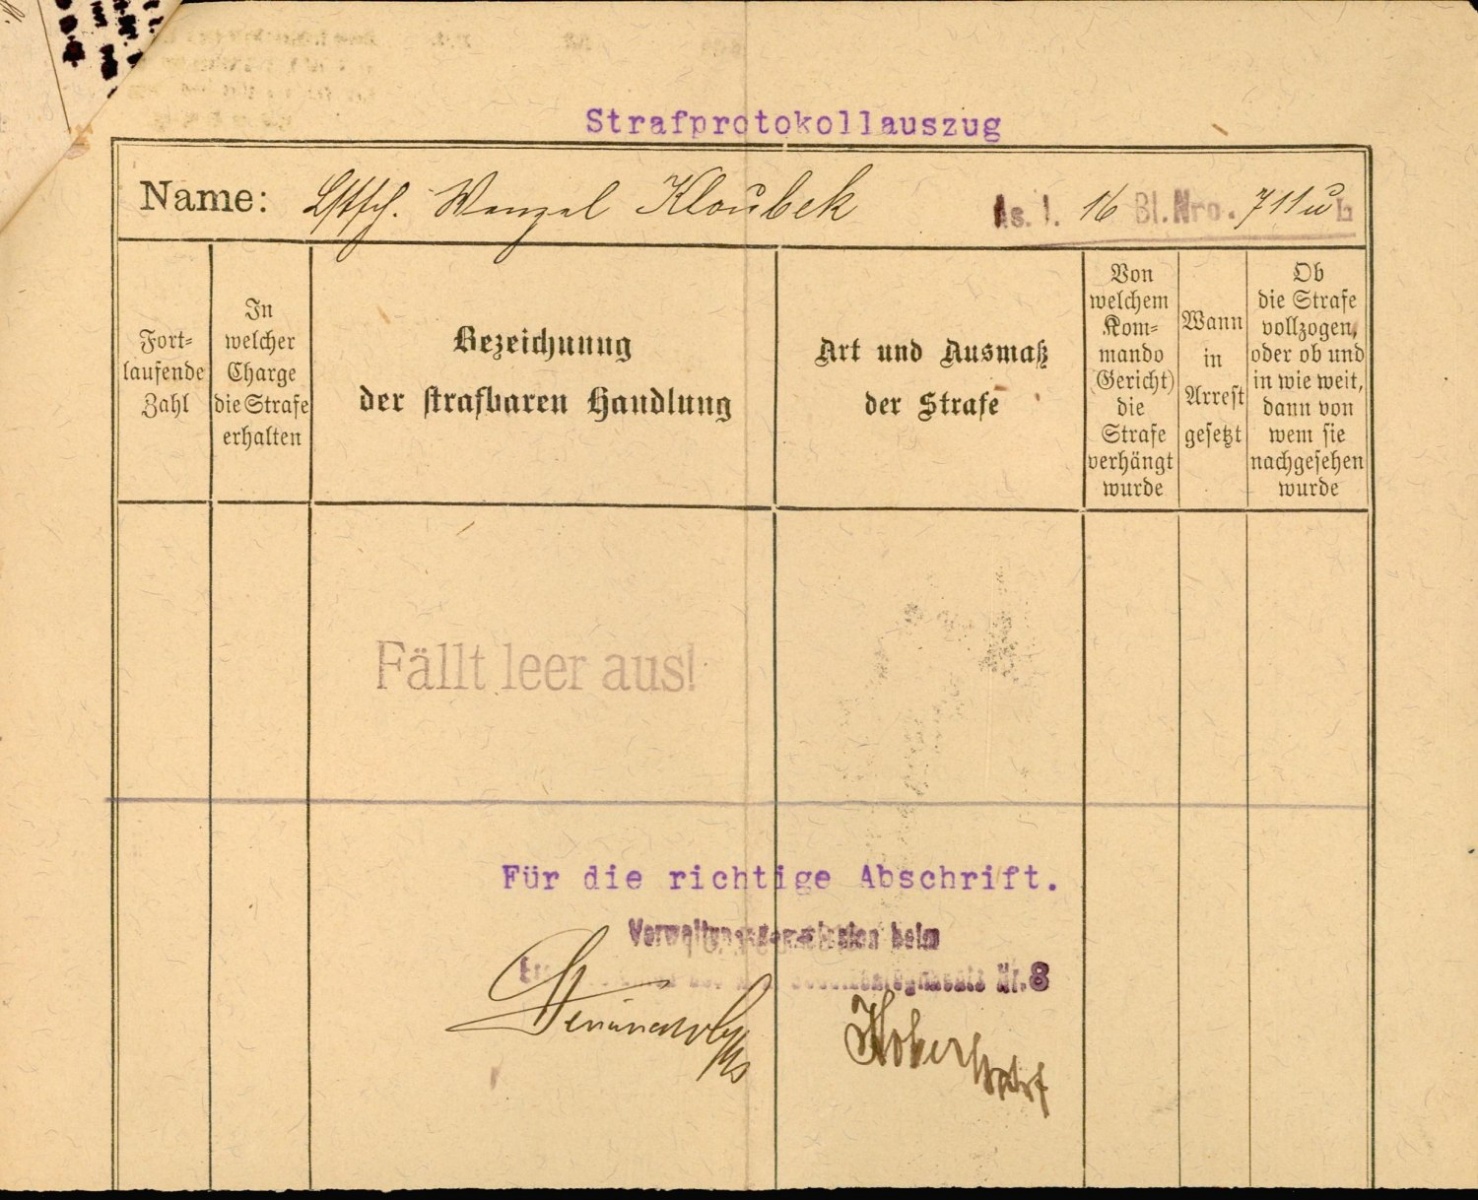 Strafprotokollauszug
Name: Lstsch. Wenzel Kloubek As. I. 16 Bl.Nro. 711 u
Fort-
laufende
Zahl
In
welcher
Charge
die Strafe
erhalten
Bezeichnung
der strafbaren Handlung
Art und Ausmaß
der Strafe
Von
welchem
Kom-
mando
(Gericht)
die
Strafe
verhängt
wurde
Wann
in
Arrest
gesetzt
Ob
die Strafe
vollzogen,
oder ob und
in wie weit,
dann von
wem sie
nachgesehen
wurde
Fällt leer aus!
Für die richtige Abschrift.
Verwaltungskommission beim
Nr. 8